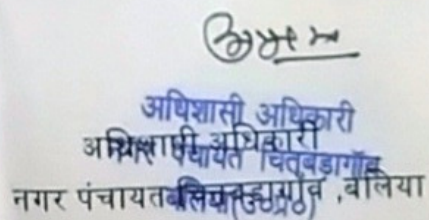 अधिशासी अधिकारी
अधिशासी अधिकारी
नगर पंचायत चितबड़ागाँव
नगर पंचायत चितबड़ागांव ,बलिया
बलिया(उ०प्र०)